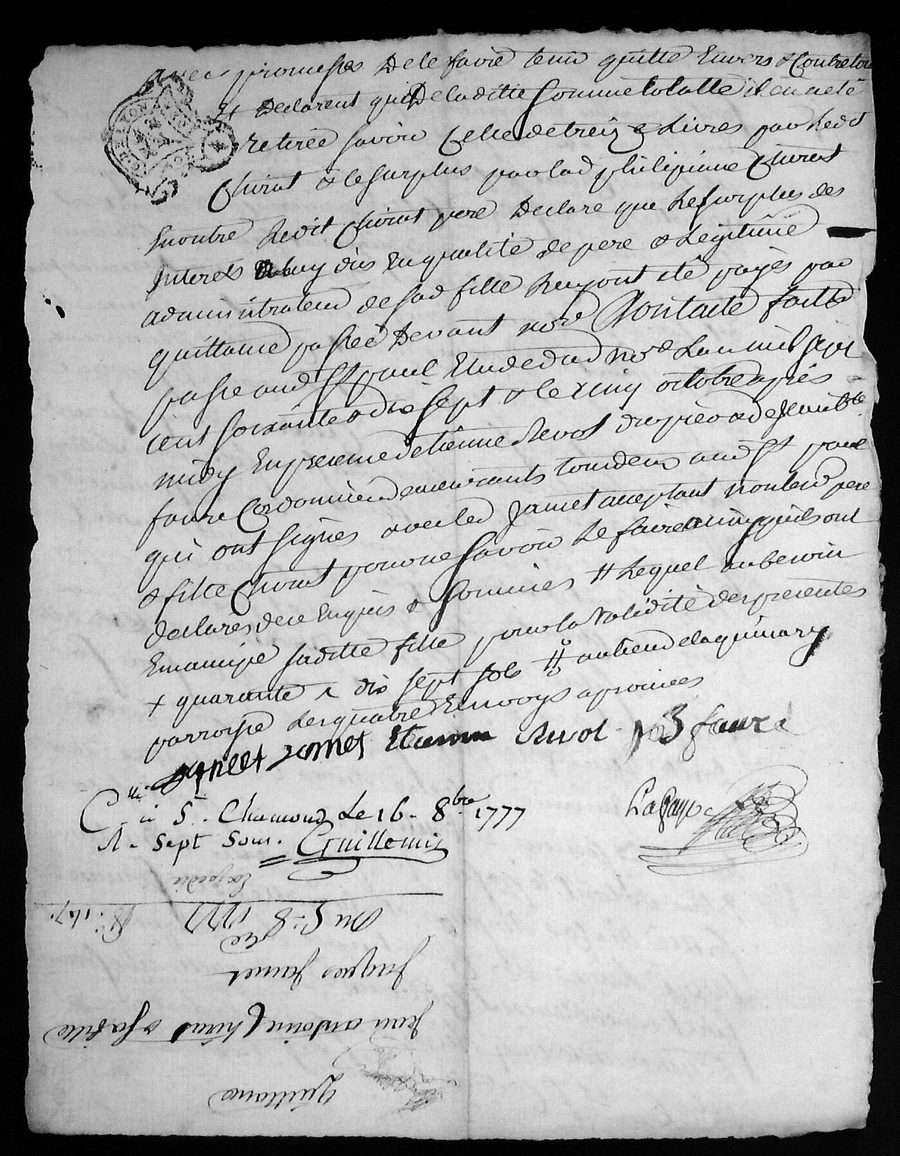 avec promesses de le faire tenir quitte Envers & Contre tous
+ declarent que De la ditte somme totalle il en a eté
retirée savoir Celle de treize Livres par Ledit
Chirat & le surplus par lad philipine Chirat
En outre Ledit Chirat pere Declare que Le surplus des
Interets En qualité de pere & Legitime
administrateur de sad fille Luy ont eté payés par
quittance passée Devant nored Dont acte fait &
passé aud St paul Etude dud nored L'an mil sept
cent soixante & dix sept & le cinq octobre après
midy En presence d'etienne Revol & de
faure Cordonnier demeurants tous deux aud St paul
qui ont signés avec led Jamet acceptant non led pere
& fille Chirat pour ne savoir Le faire ainsy qu'ils ont
declarés de ce Enquis & sommés # Lequel au besoin
Emancipe saditte fille pour la validité des presentes
+ quarante dix sept sols # au lieu de la quinary
parroisse Les quatre Envoys aprouvés
Jamet Etienne Revol faure
Clle à St. Chamond Le 16. 8bre 1777
R. sept sous. Guillemin
Expediée
Du 5e 8bre 1777
Jacques Jamet
Jean antoine Chirat & sa fille
Quittance